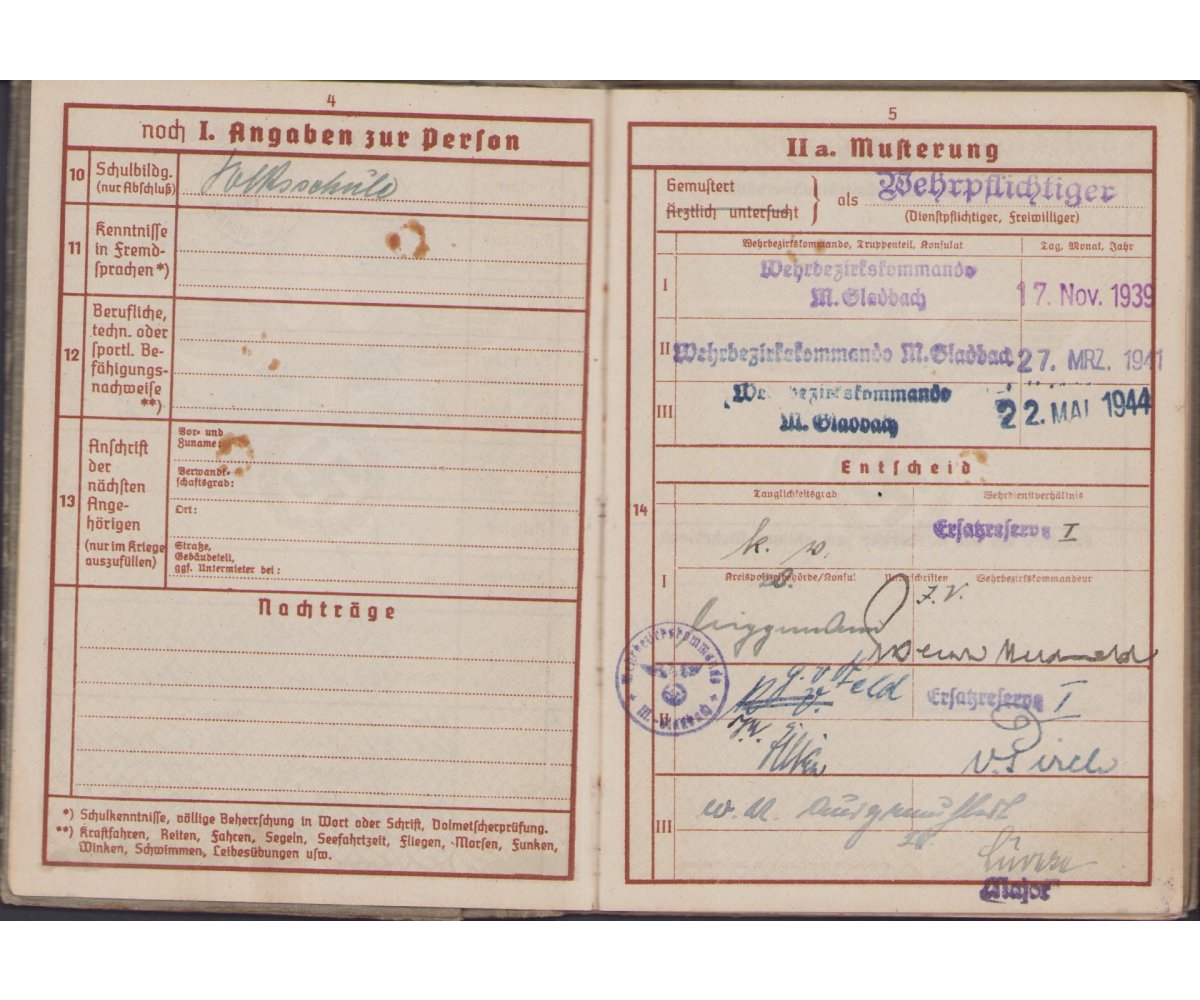 4
noch I. Angaben zur Person
10 Schulbildg. (nur Abschluß)
Volksschule
11 Kenntnisse in Fremd-
sprachen *)
12 Berufliche,
techn. oder
sportl. Be-
fähigungs-
nachweise
**)
13 Anschrift
der
nächsten
Ange-
hörigen
(nur im Kriege
auszufüllen)
Vor- und
Zuname:
Verwandt-
schaftsgrad:
Ort:
Straße,
Gebäudeteil,
ggf. Untermieter bei:
Nachträge
*) Schulkenntnisse, völlige Beherrschung in Wort oder Schrift, Dolmetscherprüfung.
**) Kraftfahren, Reiten, Fahren, Segeln, Seefahrtzeit, Fliegen, Morsen, Funken,
Winken, Schwimmen, Leibesübungen usw.
5
II a. Musterung
Gemustert
Ärztlich untersucht
als Wehrpflichtiger
(Dienstpflichtiger, Freiwilliger)
Wehrbezirkskommando, Truppenteil, Konsulat
Tag, Monat, Jahr
I Wehrbezirkskommando
M. Gladbach 17. Nov. 1939
II Wehrbezirkskommando M. Gladbach 27. MRZ. 1941
III Wehrbezirkskommando
M. Gladbach 22. MAI 1944
Entscheid
14
Tauglichkeitsgrad
Wehrdienstverhältnis
I k. v.
Ersatzreserve I
Kreispolizeibehörde/Konsul
Unterschriften
Wehrbezirkskommandeur
J. V.
Wehrbezirkskommando
M. Gladbach
II g. v. Feld
Ersatzreserve I
III
Major